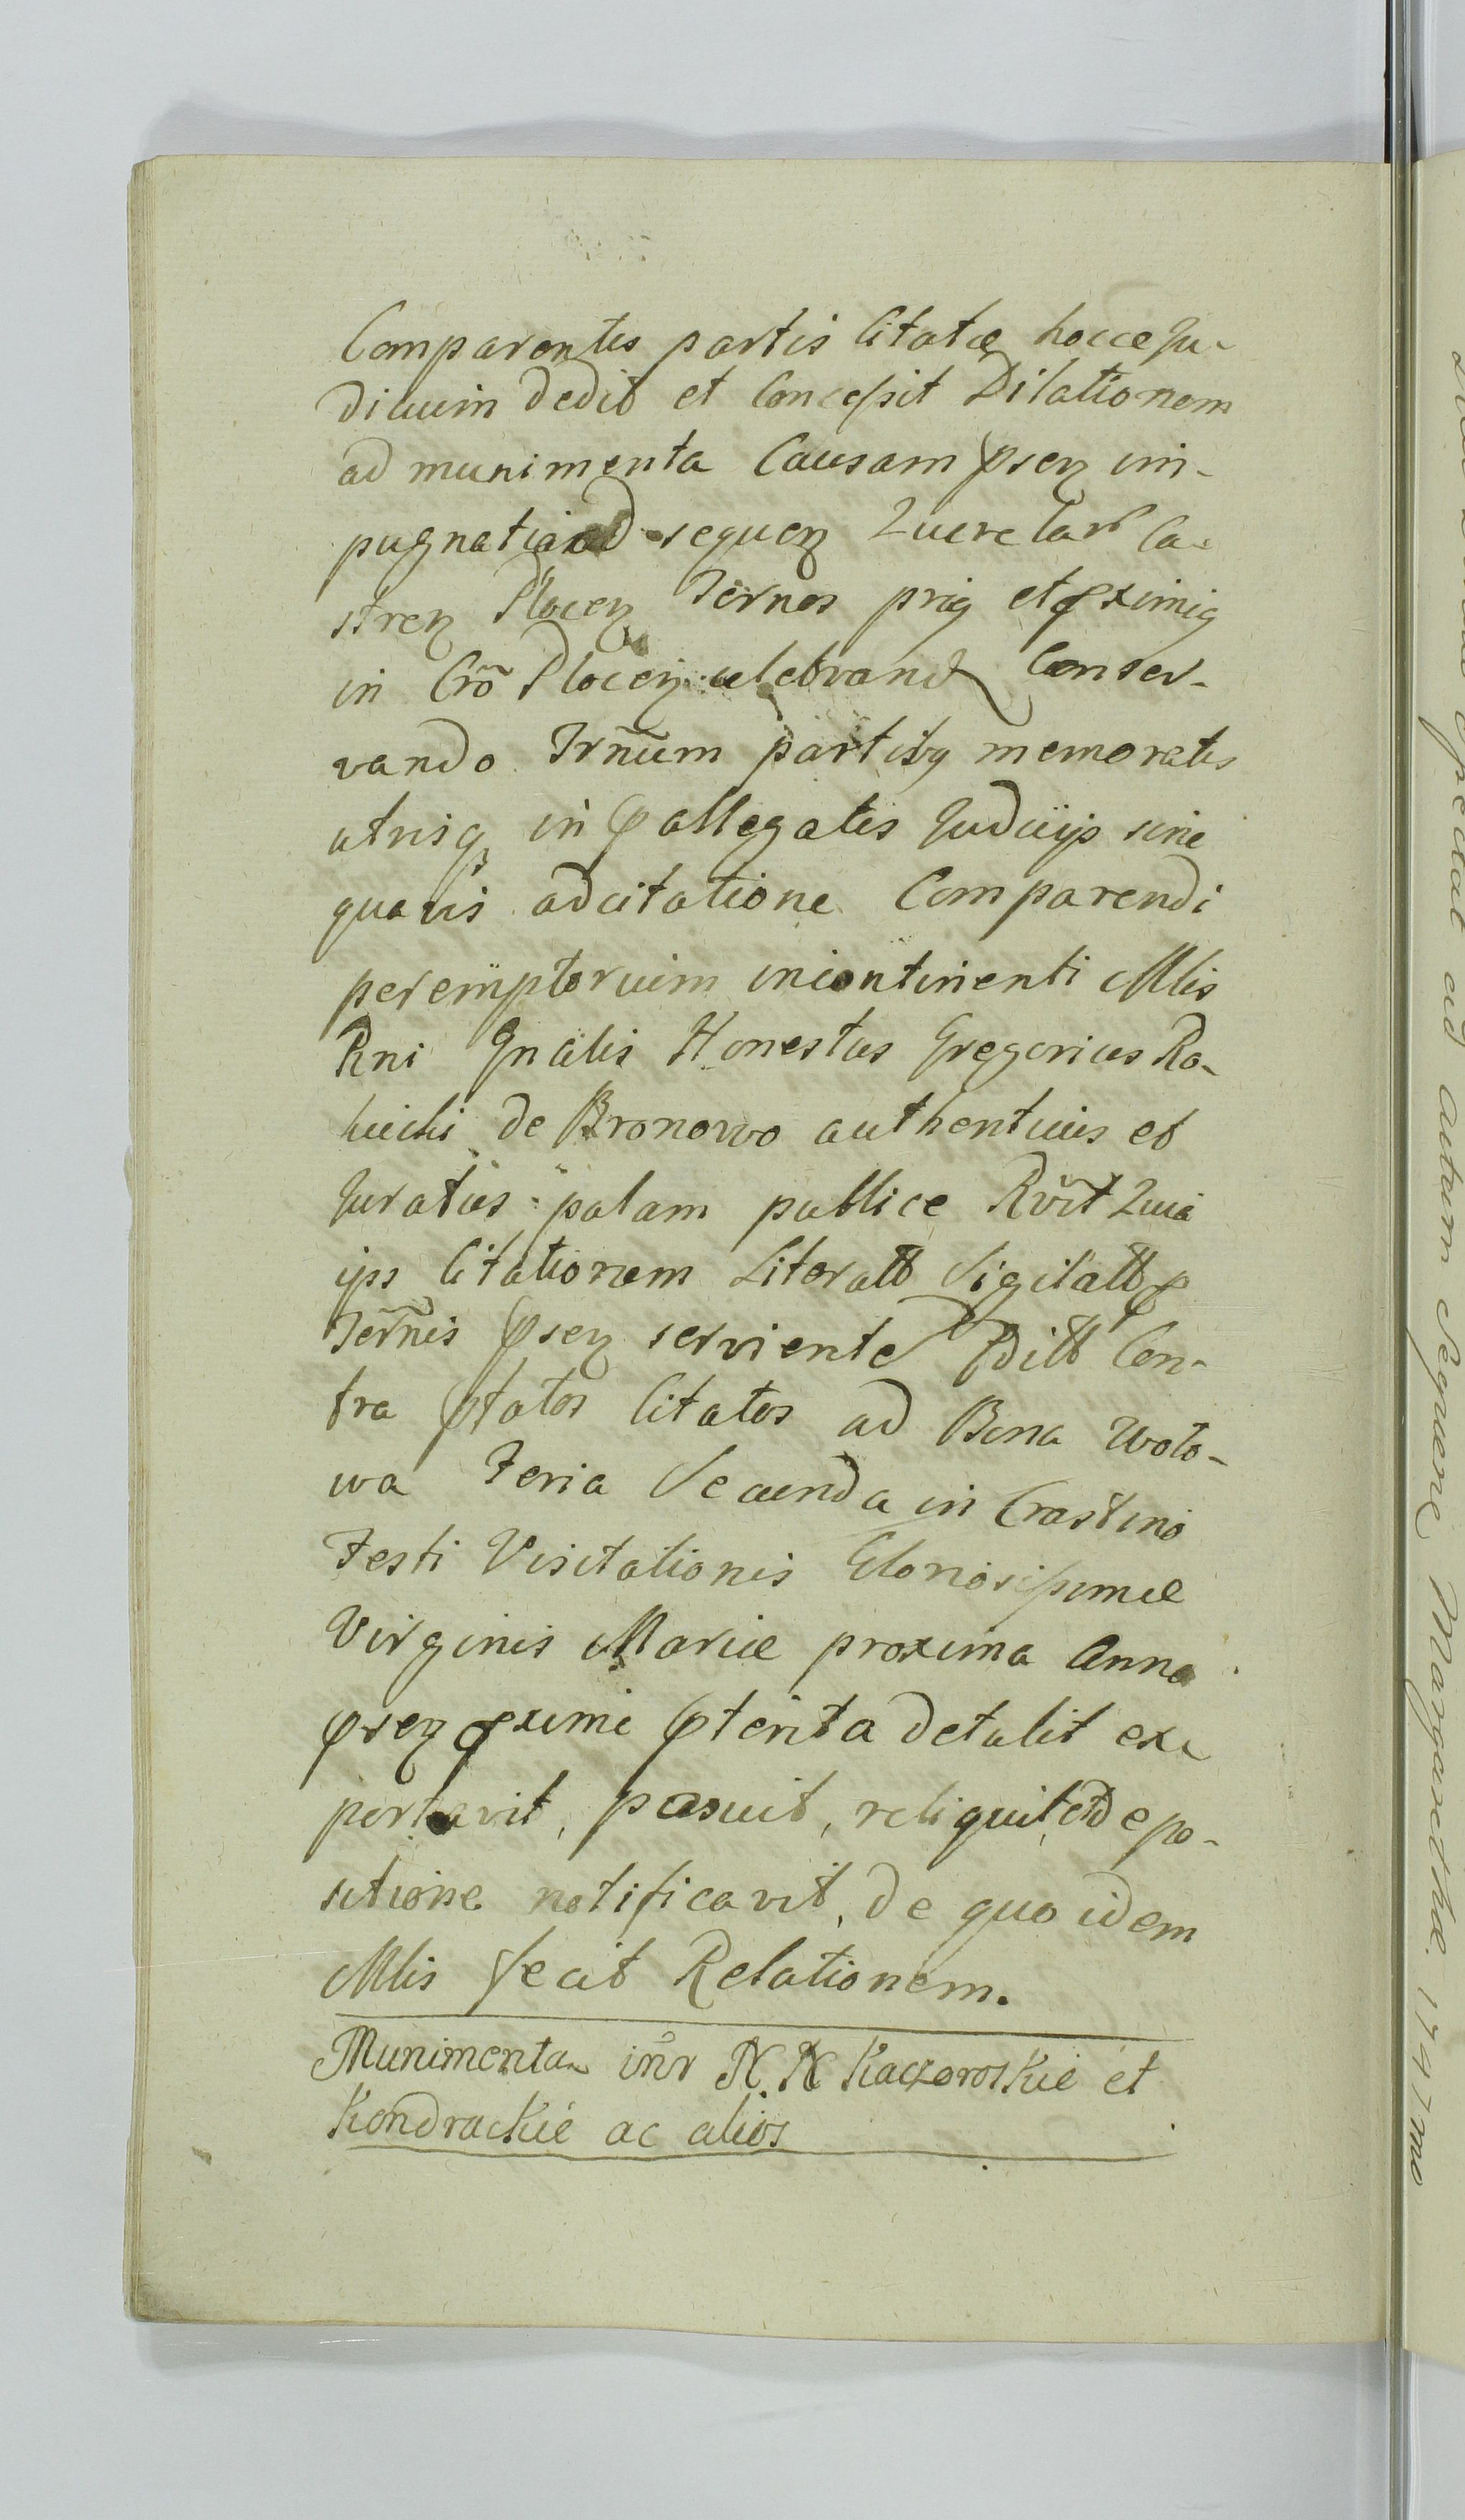 Comparentis partis Citatæ hocce Ju-
dicium dedit et Concessit Dilationem
ad munimenta Causam psen im-
pugnatia ad sequen Querelar Ca-
stren Plocen Termos
in Cro Plocen celebrand Conser-
vando Trnum partibq memoratis
utrisq in pallegatis Judicijs sine
quavis adcitatione Comparendi
peremptorium incontinenti Mlis
Rni Gnalis Honestus Gregorius Ro-
de Bronowo authenticus et
Juratus palam publice Rvit Quia
ips Citationem Literatt Sigilatt p
Ternis psen serviente Editt Con-
tra ptatos Citatos ad Bona Woto-
wa Feria Secunda in Crastino
Festi Visitationis Gloriosissimæ
Virginis Mariæ proxima Anno
psen pximi pterita detulit ex
portavit, posuit, reliquit, et de po-
sitione notificavit, de quo idem
Mlis fecit Relationem.
Munimenta inr N. N Kaczoroskie et
Kondrackie ac alios
ad actum Sequent Margarethæ 1747mo